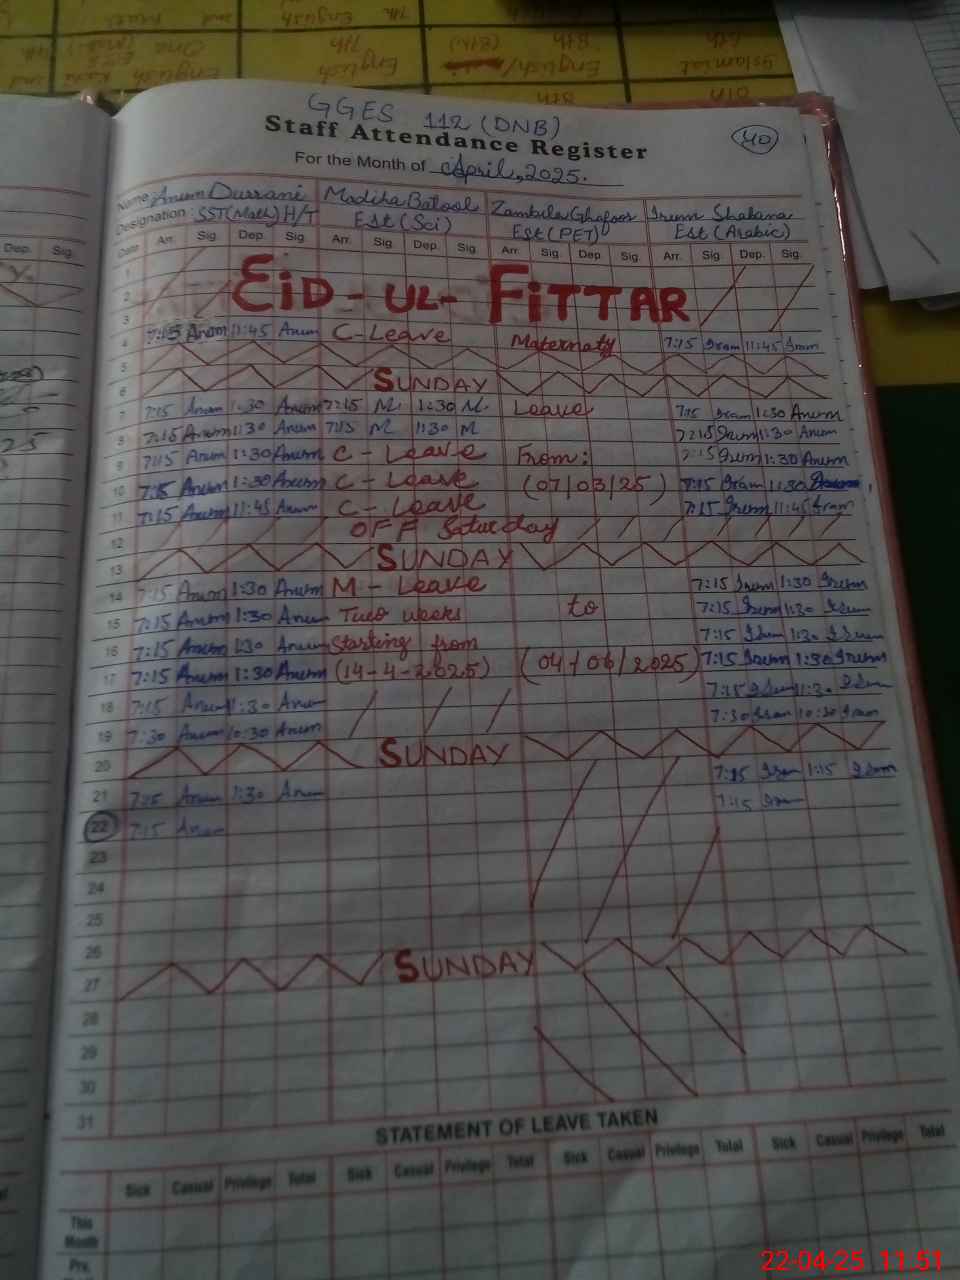 7th English and Math
6th 8th (8th) 7th One
Islamiat English/ English English
8th
GGES 112 (DNB)
Staff Attendance Register
40
For the Month of April, 2025.
Name Anum Durrani Madiha Batool Zambila Ghafoor Irum Shabana
Designation: SST(Math) H/T ESt (Sci) ESt (PET) ESt (Arabic)
Dep. Sig. Date Arr. Sig. Dep. Sig. Arr. Sig. Dep. Sig. Arr. Sig. Dep. Sig. Arr. Sig. Dep. Sig.
1
2 EiD - UL - FiTTAR
3
4 7:15 Anum 11:45 Anum C-Leave Maternaty 7:15 Iram 11:45 Iram
5
6 SUNDAY
7 7:15 Anum 1:30 Anum 7:15 M 1:30 M Leave 7:15 Irum 1:30 Anum
8 7:15 Anum 1:30 Anum 7:15 M 1:30 M 7:15 Irum 1:30 Anum
9 7:15 Anum 1:30 Anum C - Leave From: 7:15 Irum 1:30 Anum
10 7:15 Anum 1:30 Anum C - Leave (07/03/25) 7:15 Iram 1:30
11 7:15 Anum 11:45 Anum C - Leave 7:15 Irum 11:45 Iram
12 OFF Saturday
13 SUNDAY
14 7:15 Anum 1:30 Anum M - Leave 7:15 Irum 1:30 Irum
15 7:15 Anum 1:30 Anum Two weeks to 7:15 Irum 1:30 Irum
16 7:15 Anum 1:30 Anum Starting from 7:15 Irum 1:30 Irum
17 7:15 Anum 1:30 Anum (14-4-2025) (04/06/2025) 7:15 Irum 1:30 Irum
18 7:15 Anum 11:30 Anum 7:15 Irum 11:30 Irum
19 7:30 Anum 10:30 Anum 7:30 Iram 10:30 Iram
20 SUNDAY
21 7:15 Anum 1:30 Anum 7:15 Irum 1:15 Irum
22 7:15 Anum 7:15 Irum
23
24
25
26
27 SUNDAY
28
29
30
31
STATEMENT OF LEAVE TAKEN
Sick Casual Privilege Total Sick Casual Privilege Total Sick Casual Privilege Total Sick Casual Privilege Total
This Month
Prv.
22-04-25 11:51